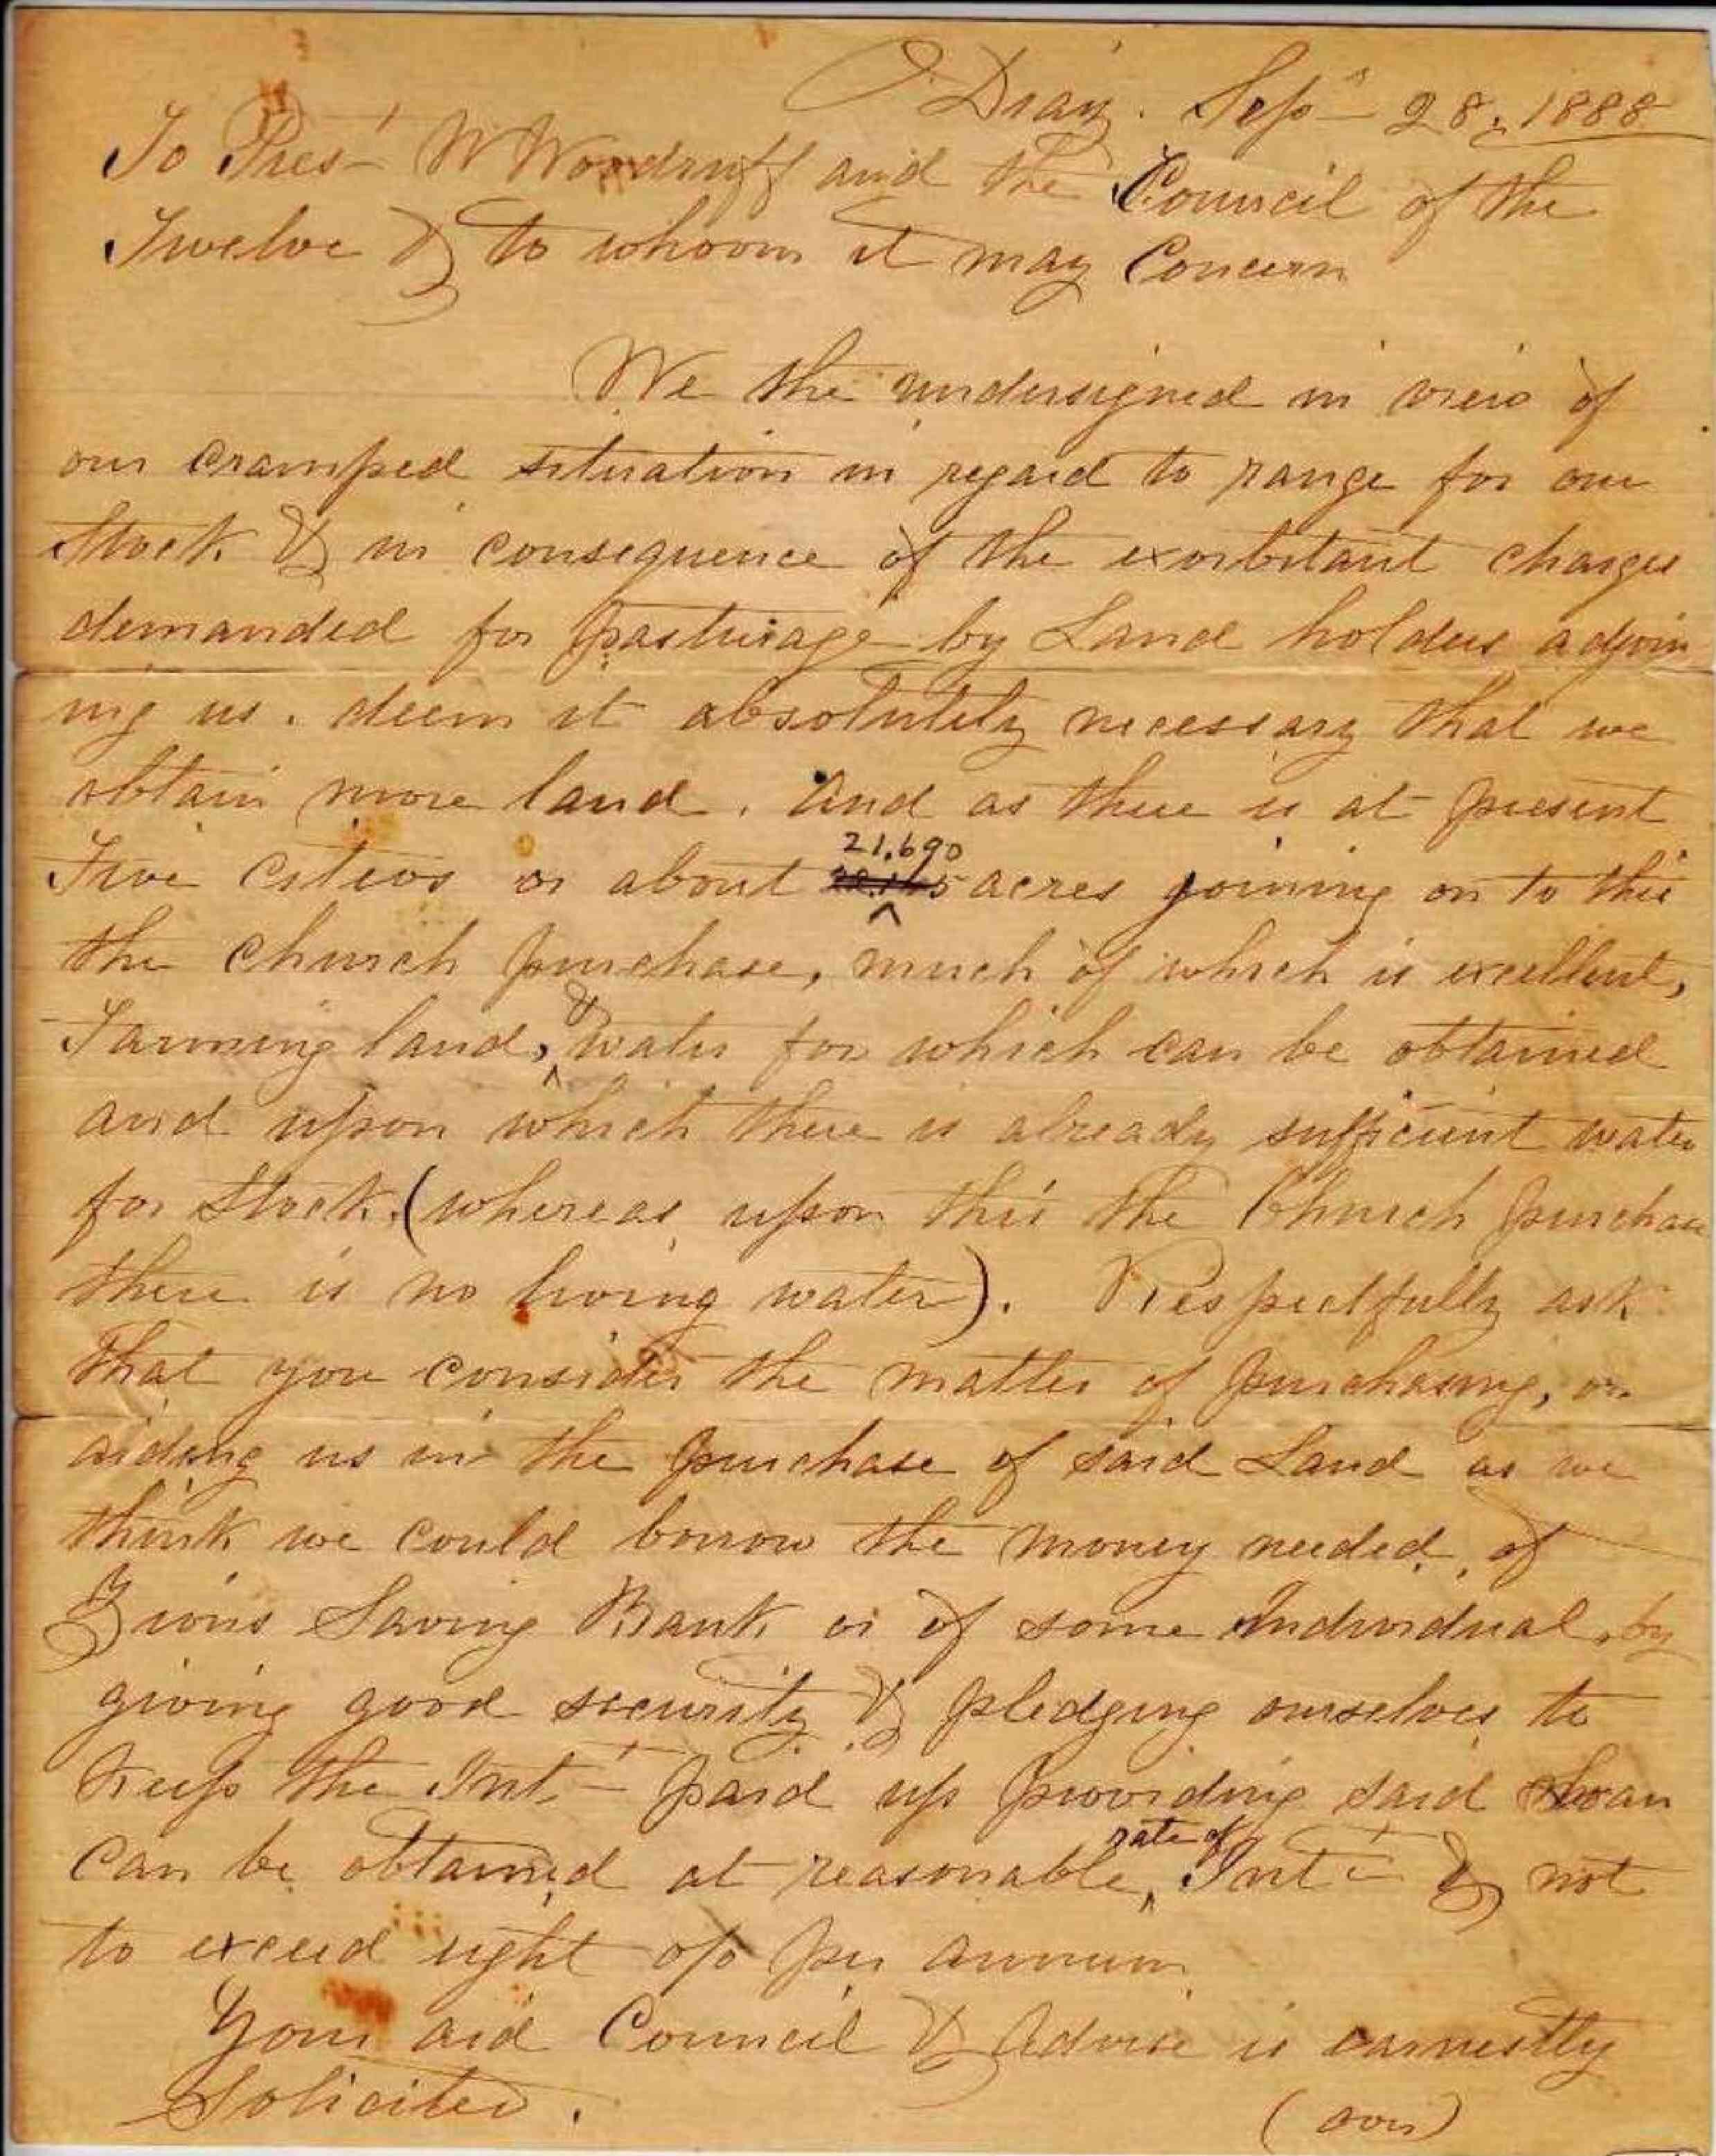 Diaz. Sept 28, 1888
To Prest W Woodruff and the Council of the
Twelve & to whoom it may Concern
We the undersigned in view of
our cramped situation in regard to range for our
Stock & in consequence of the exorbitant charges
demanded for pasturage by Land holders adjoin
ing us. deem it absolutely necessary that we
obtain more land. And as there is at present
Five Citios or about 21,690 acres joining on to this
the church purchase, much of which is excellent,
Farming land, & water for which can be obtained
and upon which there is already sufficient water
for Stock. (whereas upon this the Church purchase
there is no living water). Respectfully ask
that you consider the matter of purchasing, or
aiding us in the purchase of said Land as we
think we could borrow the money needed, of
Zions Saving Bank or of some individual, by
giving good security & pledging ourselves to
Keep the Int- paid up providing said Loan
can be obtained at reasonable rate of Int- & not
to exceed eight o/o per annum
Your aid Council & Advice is earnestly
Solicited.
(over)